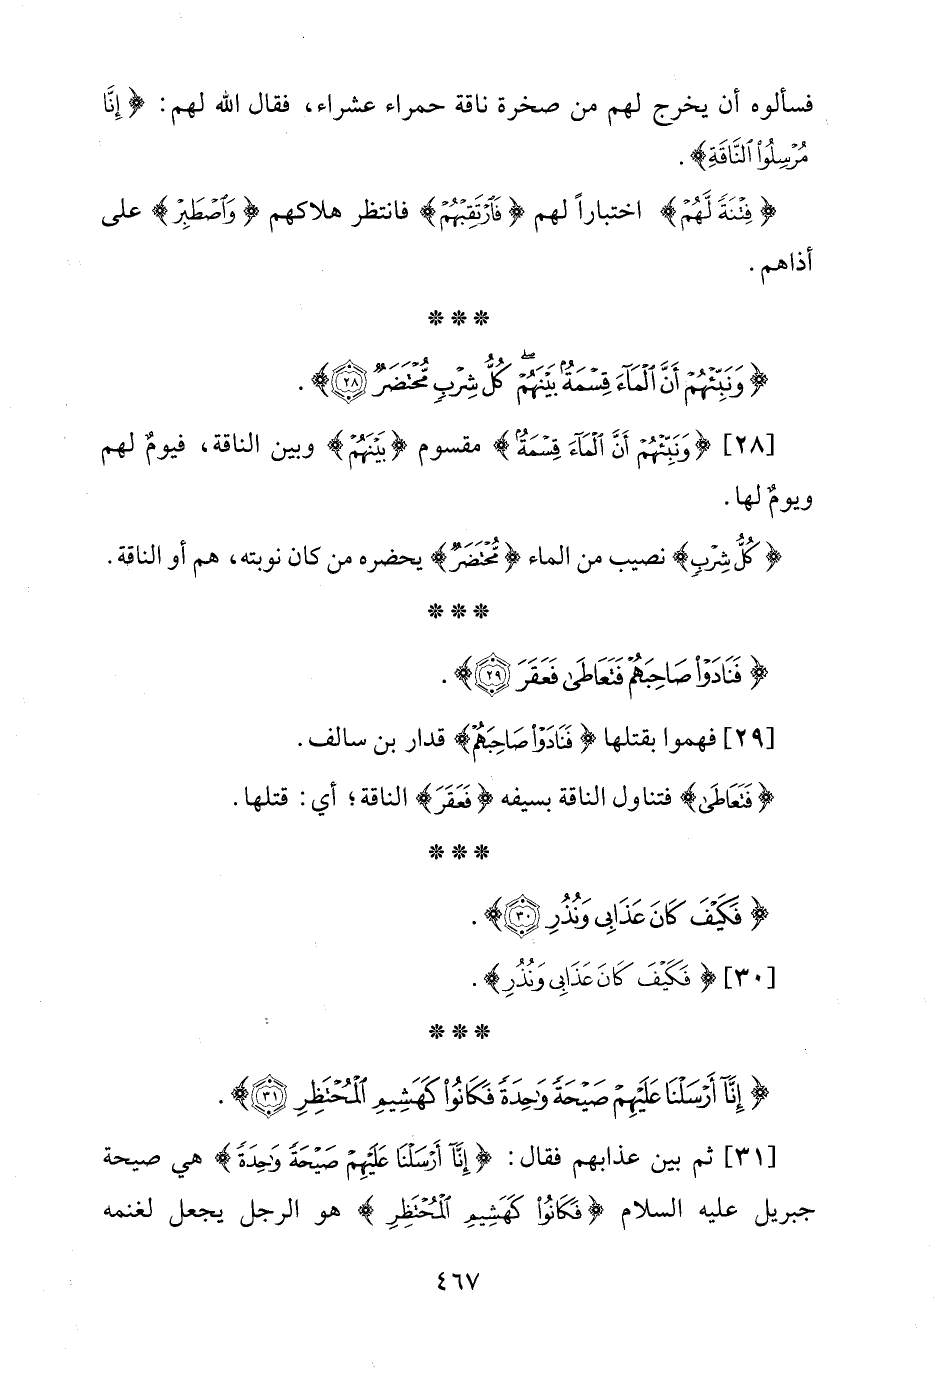 فسألوه أن يخرج لهم من صخرة ناقة حمراء عشراء، فقال الله لهم: ﴿إِنَّا
مُرْسِلُوا۟ ٱلنَّاقَةِ﴾.
﴿فِتْنَةً لَّهُمْ﴾ اختباراً لهم ﴿فَٱرْتَقِبْهُمْ﴾ فانتظر هلاكهم ﴿وَٱصْطَبِرْ﴾ على
أذاهم.
* * *
﴿وَنَبِّئْهُمْ أَنَّ ٱلْمَآءَ قِسْمَةٌۢ بَيْنَهُمْ ۖ كُلُّ شِرْبٍ مُّحْتَضَرٌ ٢٨﴾.
[٢٨] ﴿وَنَبِّئْهُمْ أَنَّ ٱلْمَآءَ قِسْمَةٌۢ﴾ مقسوم ﴿بَيْنَهُمْ﴾ وبين الناقة، فيومٌ لهم
ويومٌ لها.
﴿كُلُّ شِرْبٍ﴾ نصيب من الماء ﴿مُّحْتَضَرٌ﴾ يحضره من كان نوبته، هم أو الناقة.
* * *
﴿فَنَادَوْا۟ صَاحِبَهُمْ فَتَعَاطَىٰ فَعَقَرَ ٢٩﴾.
[٢٩] فهموا بقتلها ﴿فَنَادَوْا۟ صَاحِبَهُمْ﴾ قدار بن سالف.
﴿فَتَعَاطَىٰ﴾ فتناول الناقة بسيفه ﴿فَعَقَرَ﴾ الناقة؛ أي: قتلها.
* * *
﴿فَكَيْفَ كَانَ عَذَابِى وَنُذُرِ ٣٠﴾.
[٣٠] ﴿فَكَيْفَ كَانَ عَذَابِى وَنُذُرِ﴾.
* * *
﴿إِنَّآ أَرْسَلْنَا عَلَيْهِمْ صَيْحَةً وَٰحِدَةً فَكَانُوا۟ كَهَشِيمِ ٱلْمُحْتَظِرِ ٣١﴾.
[٣١] ثم بين عذابهم فقال: ﴿إِنَّآ أَرْسَلْنَا عَلَيْهِمْ صَيْحَةً وَٰحِدَةً﴾ هي صيحة
جبريل عليه السلام ﴿فَكَانُوا۟ كَهَشِيمِ ٱلْمُحْتَظِرِ﴾ هو الرجل يجعل لغنمه
٤٦٧